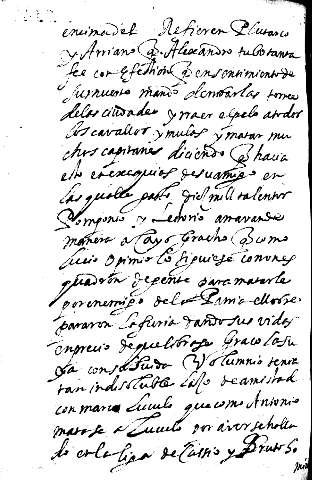 encima del Refieren Plutarco
y Arriano q Alexandro tubo tanta
fee con Efestion q en sentimiento de
su muerte mando derribar las torres
de las ciudades y traer el pelo a todos
los cavallos y mulas y matar mu
chos capitanes diciendo q hacia
esto en exequias de su amigo en
las quales gasto diez mill talentos
Pomponio y Letorio amavan de
manera a Cayo Gracho q como
Lucio Opimio lo siguiese con un es
quadron de gente para matarle
por enemigo de la Patria ellos re
pararon la furia dando sus vidas
en precio de que librase Graco la su
ya con la huida Volumnio tenia
tan indisoluble laço de amistad
con marco Luculo que como Antonio
matase a Luculo por averse halla
do en la liga de Cassio y Bruto